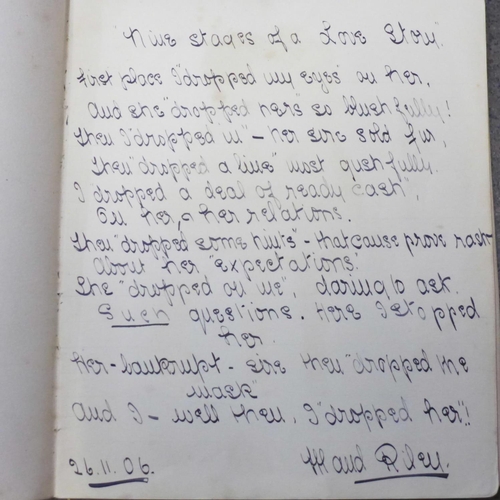 "Nine stages of a Love Story."
First place I "dropped my eyes" on her,
And she "dropped hers" so blushfully!
Then I "dropped in" - her sire sold fur,
Then "dropped a line" most gushfully.
I dropped a deal of ready cash",
On her, & her relations.
Then "dropped some hints" - that cause prove rash
About her "expectations".
She "dropped on me", daring to ask.
Such questions. Here I stopped
her.
Her - bankrupt - sire then "dropped the
mask"
And I - well then, I "dropped her"!!
26.11.06. Maud Riley.